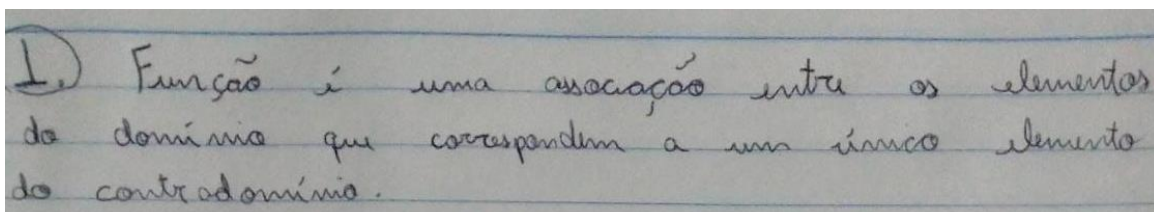 1.) Função é uma associação entre os elementos
do domínio que correspondem a um único elemento
do contradomínio.